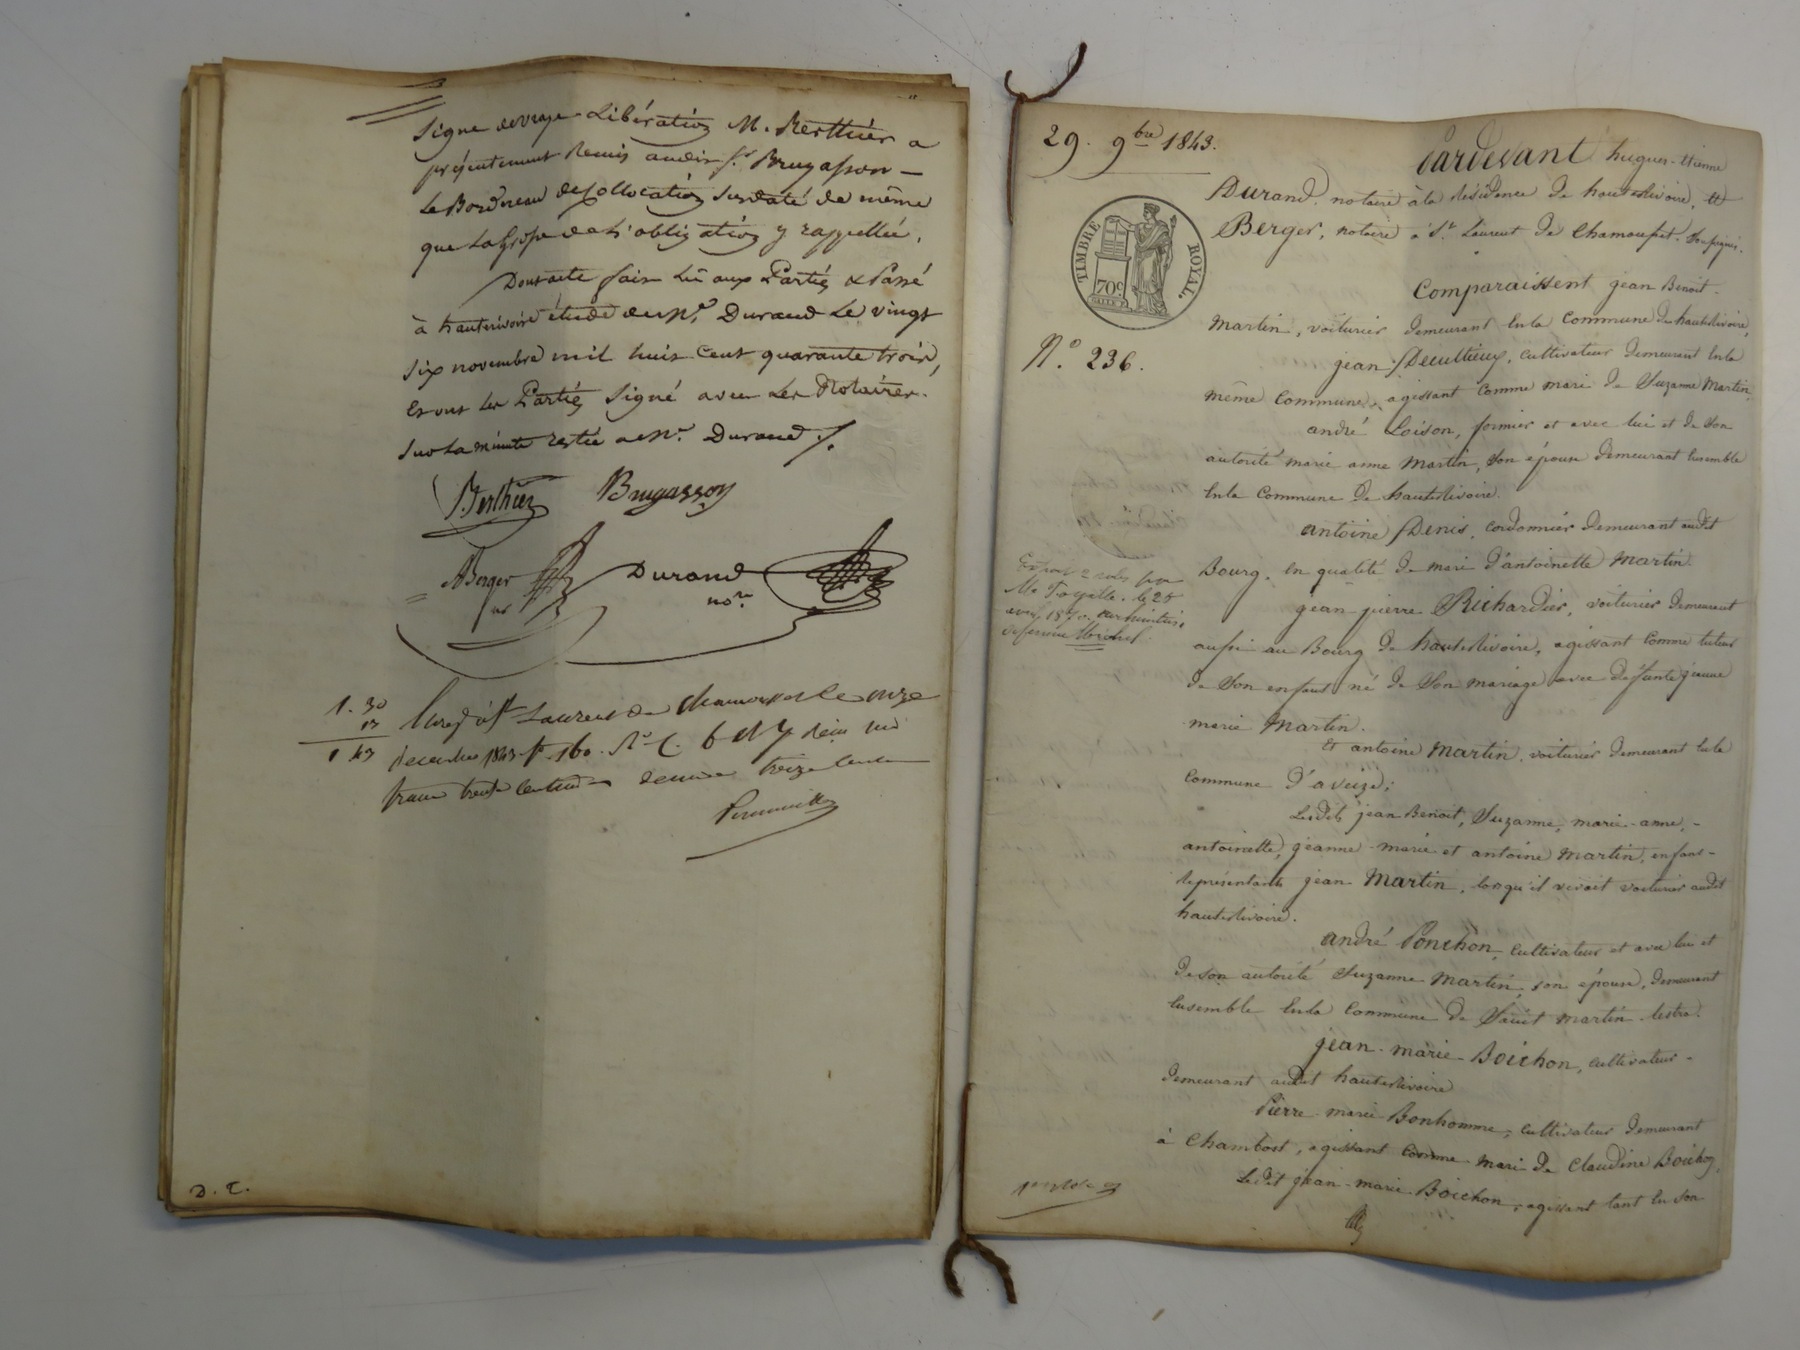 Signe de vraye Libération M. Berthier a
présentement Remis audit Sr. Brugasson —
Le Bordereau de Collocation Susdaté de même
que La Grosse de L'obligation y rappellée.
Dont acte fait Lû aux Partiés & Passé
à hauterivoire étude de Me. Durand Le vingt
six novembre mil huit cent quarante trois,
Et ont Les Partiés Signé avec Les Notaires.
Sur La minute restée a Me. Durand
Berthier Brugasson
ABerger Durand
nre nore.
1. 30
13
1 43
Enreg. à St Laurent de Chamousset le onze
decembre 1843 fo. 160. Ro. C. 6 et 7 Reçu un
franc trente centimes decime treize centimes
D. C.
29. 9bre 1843.
Pardevant hugues-étienne
Durand, notaire à la Résidence de hauterivoire, et
Berger, notaire à St. Laurent de Chamousset. Soussignés.
TIMBRE ROYAL.
70c
Comparaissent jean Benoit
Martin, voiturier demeurant En la Commune de hauterivoire,
N.o 236.
jean Decultieux, cultivateur demeurant En la
même Commune, agissant comme mari de Suzanne Martin,
andré Loison, fermier et avec lui et de Son
autorité marie anne Martin, Son épouse demeurant Ensemble
En la Commune de hauterivoire.
antoine Denis, cordonnier demeurant audit
Bourg, En qualité de mari d'antoinette Martin.
Expédié 2 roles pour
Me Fayolle, le 25
avril 1870
jean pierre Richardier, voiturier demeurant
aussi au Bourg de hauterivoire, agissant Comme tuteur
de Son enfant né de Son mariage avec défunte jeanne
marie Martin.
Et antoine Martin, voiturier demeurant En la
Commune D'aveize;
Lesdits jean Benoit, Suzanne, marie-anne,-
antoinette, jeanne-marie et antoine Martin, enfans-
Représentants jean Martin, lorsqu'il vivait voiturier audit
hauterivoire.
andré Ponchon, Cultivateur et avec lui et
de son autorité Suzanne Martin, son épouse, demeurant
Ensemble En la Commune de Saint Martin-lestra.
jean-marie-Boichon, cultivateur-
demeurant audit hauterivoire
Pierre-marie Bonhomme, cultivateur demeurant
à Chambost, agissant comme mari de Claudine Boichon,
Ledit jean-marie-Boichon, agissant tant En Son